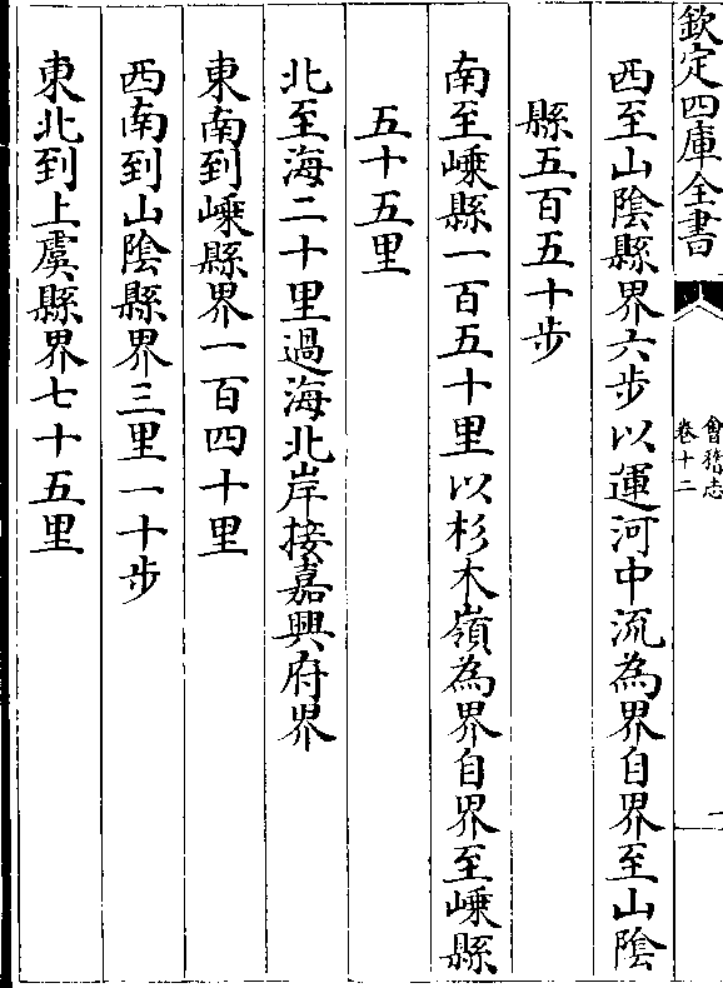 欽定四庫全書
會稽志
卷十二
西至山陰縣界六步以運河中流為界自界至山陰
縣五百五十步
南至嵊縣一百五十里以杉木嶺為界自界至嵊縣
五十五里
北至海二十里過海北岸接嘉興府界
東南到嵊縣界一百四十里
西南到山陰縣界三里一十步
東北到上虞縣界七十五里